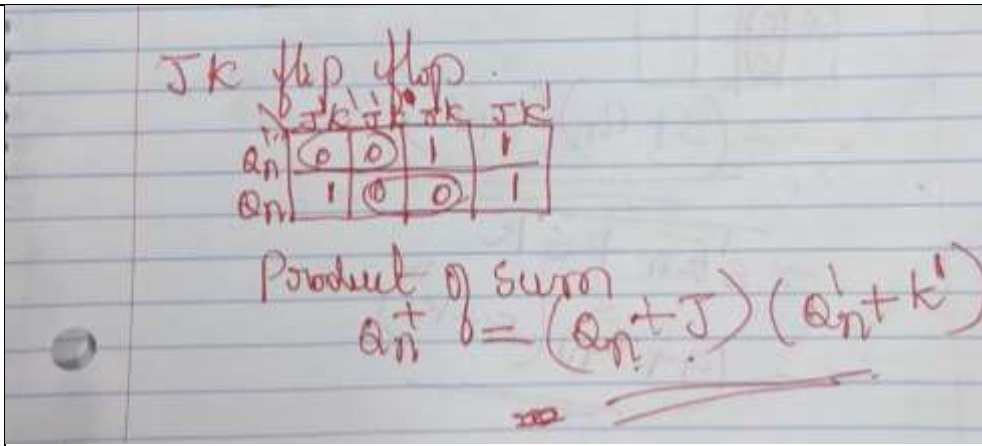 JK flip flop.
J'K' J'K JK JK'
Qn' 0 0 1 1
Qn 1 0 0 1
Product of sum
Qn+ = (Qn + J) (Qn' + K')